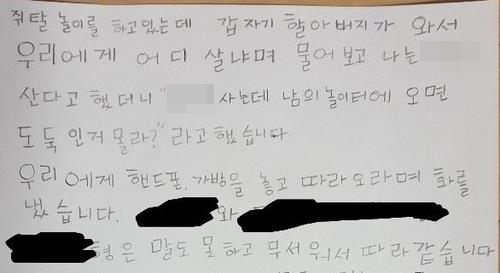 쥐탈 놀이를 하고있는데 갑자기 할아버지가 와서
우리에게 어디 살냐며 물어보고 나는
산다고 했더니 " 사는데 남의놀이터에 오면
도둑인거 몰라?" 라고했습니다
우리에게 핸드폰, 가방을 놓고 따라오라며 화를
냈습니다. 와
형은 말도 못하고 무서워서 따라갔습니다